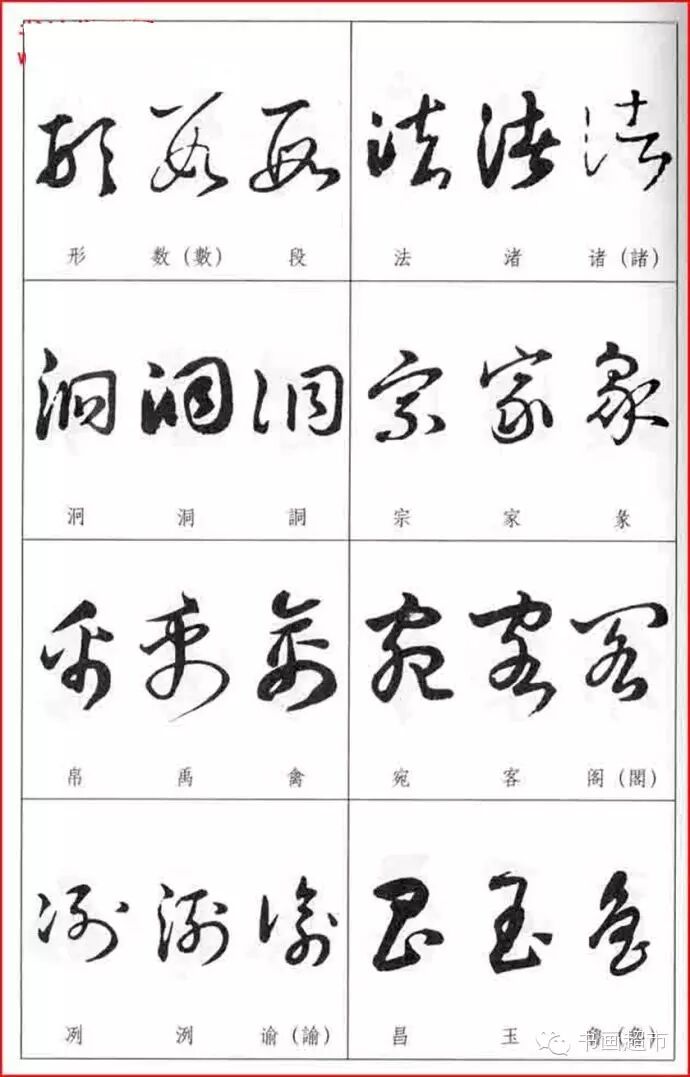 形 数（數） 段 法 渚 诸（諸）
泂 洞 詷 宗 家 彖
帛 禹 禽 宛 客 阁（閣）
冽 洌 谕（諭） 昌 玉
书画超市